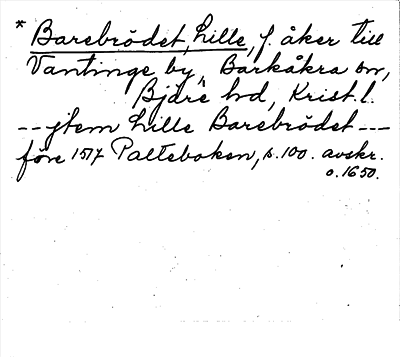 * Barebrödet, Lille, f. åker till
Vantinge by, Barkåkra sn,
Bjäre hd, Krist. l.
-- jtem Lille Barebrödet ---
före 1517 Palteboken, s. 100. avskr.
o. 1650.